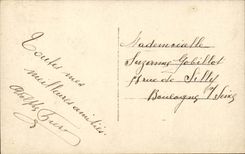 Toutes mes
meilleures amitiés
Mademoiselle
Suzanne Gobillot
rue de Silly
Boulogne s/Seine